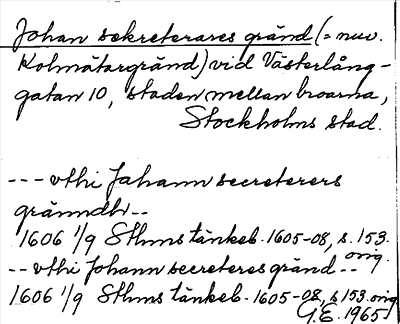 Johan sekreterares gränd (= nuv.
Kolmätargränd) vid Västerlång-
gatan 10, staden mellan broarna,
Stockholms stad.
--- vthi Jahann secreterers
gränndh --
1606 1/9 Sthms tänkeb. 1605-08, s. 153.
orig.
-- vthi Johann secreteres gränd --
1606 1/9 Sthms tänkeb. 1605-08, s 153 orig
G.E. 1965